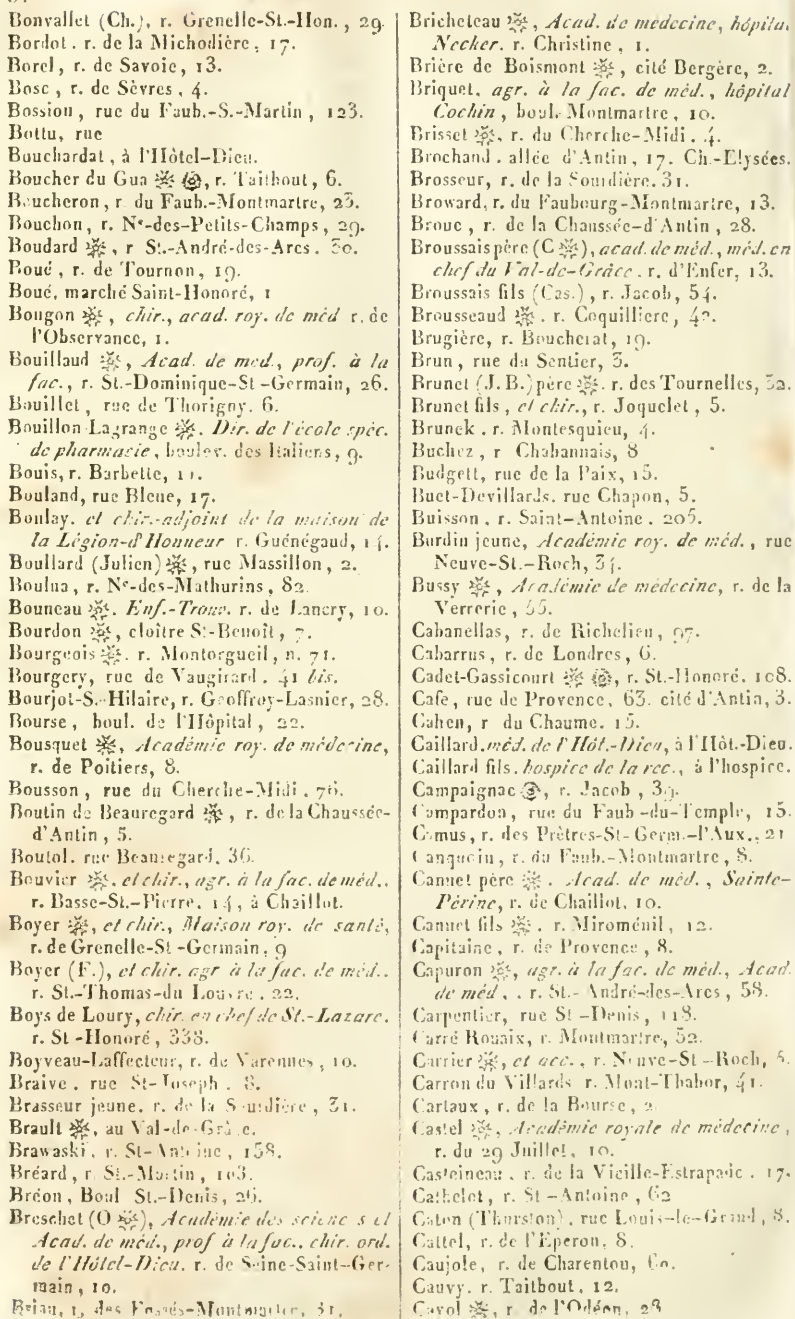 Bonvallet (Ch.), r. Grenelle-St.-Hon., 29.
Bordot. r. de la Michodière, 17.
Borel, r. de Savoie, 13.
Bosc, r. de Sèvres, 4.
Bossion, rue du Faub.-S.-Martin, 123.
Bottu, rue
Bouchardat, à l'Hôtel-Dieu.
Boucher du Gua, r. Taitbout, 6.
Boucheron, r. du Faub.-Montmartre, 23.
Bouchon, r. Ne-des-Petits-Champs, 29.
Boudard, r St.-André-des-Arcs. 30.
Boué, r. de Tournon, 19.
Boué, marché Saint-Honoré, 1
Bougon, chir., acad. roy. de méd r. de
l'Observance, 1.
Bouillaud, Acad. de méd., prof. à la
fac., r. St.-Dominique-St-Germain, 26.
Bouillet, rue de Thorigny. 6.
Bouillon-Lagrange. Dir. de l'école spéc.
de pharmacie, boulev. des Italiens, 9.
Bouis, r. Barbette, 11.
Bouland, rue Bleue, 17.
Boulay. et chir.-adjoint de la maison de
la Légion-d'Honneur r. Guénégaud, 14.
Boullard (Julien), rue Massillon, 2.
Boulua, r. Ne-des-Mathurins, 82.
Bouneau. Enf.-Trouv. r. de Lancry, 10.
Bourdon, cloître St-Benoît, 7.
Bourgeois. r. Montorgueil, n. 71.
Bourgery, rue de Vaugirard. 41 bis.
Bourjot-S.-Hilaire, r. Geoffroy-Lasnier, 28.
Bourse, boul. de l'Hôpital, 22.
Bousquet, Académie roy. de médecine,
r. de Poitiers, 8.
Bousson, rue du Cherche-Midi. 76.
Boutin de Beauregard, r. de la Chaussée-
d'Antin, 5.
Boutol. rue Beauregard. 36.
Bouvier. et chir., agr. à la fac. de méd..
r. Basse-St.-Pierre. 14, à Chaillot.
Boyer, et chir., Maison roy. de santé,
r. de Grenelle-St-Germain, 9
Boyer (F.), et chir. agr à la fac. de méd..
r. St.-Thomas-du Louvre. 22.
Boys de Loury, chir. en chef de St.-Lazare.
r. St-Honoré, 338.
Boyveau-Laffecteur, r. de Varennes, 10.
Braive. rue St-Joseph. 8.
Brasseur jeune. r. de la Sourdière, 31.
Brault, au Val-de-Grâce.
Brawaski. r. St-Antoine, 158.
Bréard, r. St.-Martin, 103.
Bréon, Boul St.-Denis, 26.
Breschet (O), Académie des sciences et
Acad. de méd., prof à la fac., chir. ord.
de l'Hôtel-Dieu. r. de Seine-Saint-Ger-
main, 10.
Brian, r. des Fossés-Montmartre, 31.
Bricheteau, Acad. de médecine, hôpital
Necker. r. Christine, 1.
Brière de Boismont, cité Bergère, 2.
Briquet. agr. à la fac. de méd., hôpital
Cochin, boul. Montmartre, 10.
Brisset, r. du Cherche-Midi. 4.
Brochand. allée d'Antin, 17. Ch.-Elysées.
Brosseur, r. de la Sourdière. 31.
Broward, r. du Faubourg-Montmartre, 13.
Brouc, r. de la Chaussée-d'Antin, 28.
Broussais père (C), acad. de méd., méd. en
chef du Val-de-Grâce. r. d'Enfer, 13.
Broussais fils (Cas.), r. Jacob, 54.
Brousseaud. r. Coquillière, 42.
Brugière, r. Boucherat, 19.
Brun, rue du Sentier, 3.
Brunet (J. B.) père. r. des Tournelles, 32.
Brunet fils, et chir., r. Joquelet, 5.
Brunek. r. Montesquieu, 4.
Buchez, r Chabannais, 8
Budgett, rue de la Paix, 15.
Buet-Devillards. rue Chapon, 5.
Buisson. r. Saint-Antoine. 205.
Burdin jeune, Académie roy. de méd., rue
Neuve-St.-Roch, 34.
Bussy, Académie de médecine, r. de la
Verrerie, 55.
Cabanellas, r. de Richelieu, 97.
Cabarrus, r. de Londres, 6.
Cadet-Gassicourt, r. St.-Honoré. 108.
Cafe, rue de Provence, 63. cité d'Antin, 3.
Cahen, r du Chaume. 15.
Caillard. méd. de l'Hôt.-Dieu, à l'Hôt.-Dieu.
Caillard fils. hospice de la rec., à l'hospice.
Campaignac, r. Jacob, 39.
Campardon, rue du Faub-du-Temple, 15.
Camus, r. des Prêtres-St-Germ.-l'Aux., 21
Canquoin, r. du Faub.-Montmartre, 8.
Cannet père. Acad. de méd., Sainte-
Périne, r. de Chaillot. 10.
Cannet fils. r. Miroménil, 12.
Capitaine, r. de Provence, 8.
Capuron, agr. à la fac. de méd., Acad.
de méd., r. St.-André-des-Arcs, 58.
Carpentier, rue St-Denis, 118.
Carré Rouaix, r. Montmartre, 52.
Carrier, et acc., r. Neuve-St-Roch, 8.
Carron du Villards r. Mont-Thabor, 41.
Cartaux, r. de la Bourse, 2
Castel, Académie royale de médecine,
r. du 29 Juillet, 10.
Casteineau. r. de la Vieille-Estrapade. 17.
Cathelot, r. St-Antoine, 62
Caton (Thurston), rue Louis-le-Grand, 8.
Cattel, r. de l'Eperon, 8.
Caujole, r. de Charenton, 60.
Cauvy. r. Taitbout. 12.
Cayol, r. de l'Odéon, 28